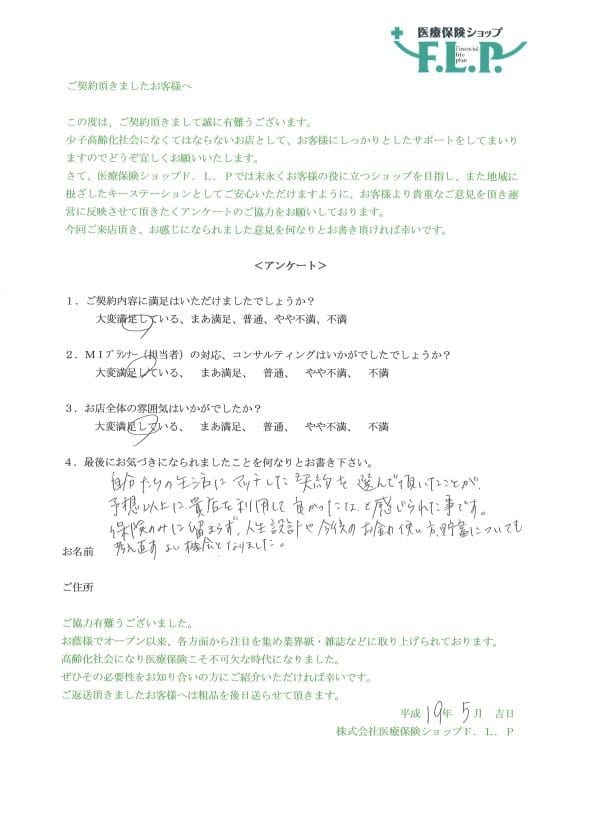 医療保険ショップ
F.L.P.
Financial
life
plan
ご契約頂きましたお客様へ
この度は、ご契約頂きまして誠に有難うございます。
少子高齢化社会になくてはならないお店として、お客様にしっかりとしたサポートをしてまいり
ますのでどうぞ宜しくお願いいたします。
さて、医療保険ショップＦ．Ｌ．Ｐでは末永くお客様の役に立つショップを目指し、また地域に
根ざしたキーステーションとしてご安心いただけますように、お客様より貴重なご意見を頂き運
営に反映させて頂きたくアンケートのご協力をお願いしております。
今回ご来店頂き、お感じになられました意見を何なりとお書き頂ければ幸いです。
＜アンケート＞
１．ご契約内容に満足はいただけましたでしょうか？
大変満足している、まあ満足、普通、やや不満、不満
２．ＭＩﾌﾟﾗﾝﾅｰ（担当者）の対応、コンサルティングはいかがでしたでしょうか？
大変満足している、 まあ満足、 普通、 やや不満、 不満
３．お店全体の雰囲気はいかがでしたか？
大変満足している、 まあ満足、 普通、 やや不満、 不満
４．最後にお気づきになられましたことを何なりとお書き下さい。
自分たちの生活にマッチした契約を選んで頂いたことが、
予想以上に貴店を利用して良かったな、と感じられた事です。
保険のみに留まらず、人生設計や今後のお金の使い方、貯蓄についても
考え直すよい機会となりました。
お名前
ご住所
ご協力有難うございました。
お蔭様でオープン以来、各方面から注目を集め業界紙・雑誌などに取り上げられております。
高齢化社会になり医療保険こそ不可欠な時代になりました。
ぜひその必要性をお知り合いの方にご紹介いただければ幸いです。
ご返送頂きましたお客様へは粗品を後日送らせて頂きます。
平成 19年 5月 吉日
株式会社医療保険ショップＦ．Ｌ．Ｐ